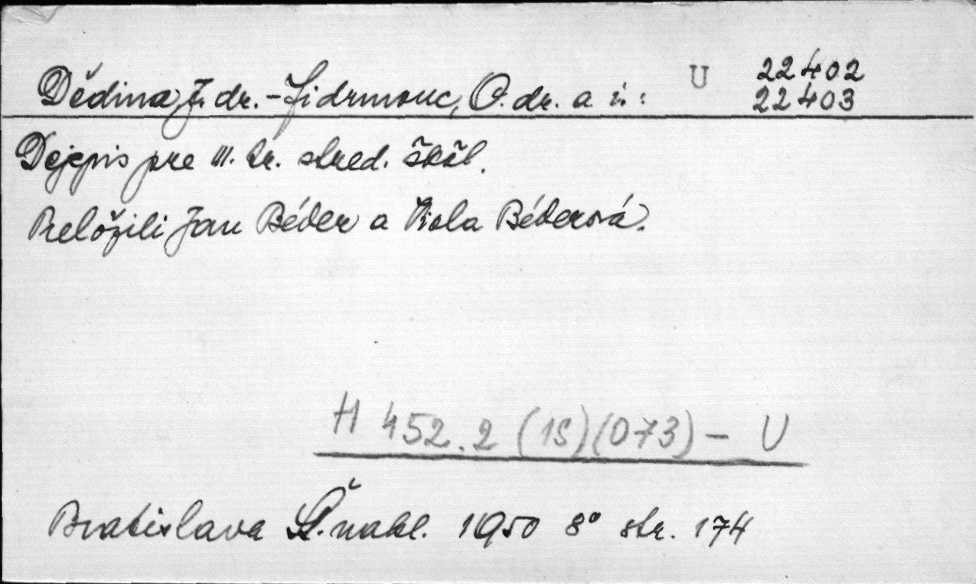 Dědina, F. dr. - Jidrmouc, O. dr. a i.: U 22402
22403
Dejepis pre III. tr. stred. škôl.
Preložili Jan Béder a Viola Béderová.
H 452.2 (1S)(073) - U
Bratislava Št. nakl. 1950 8° str. 174